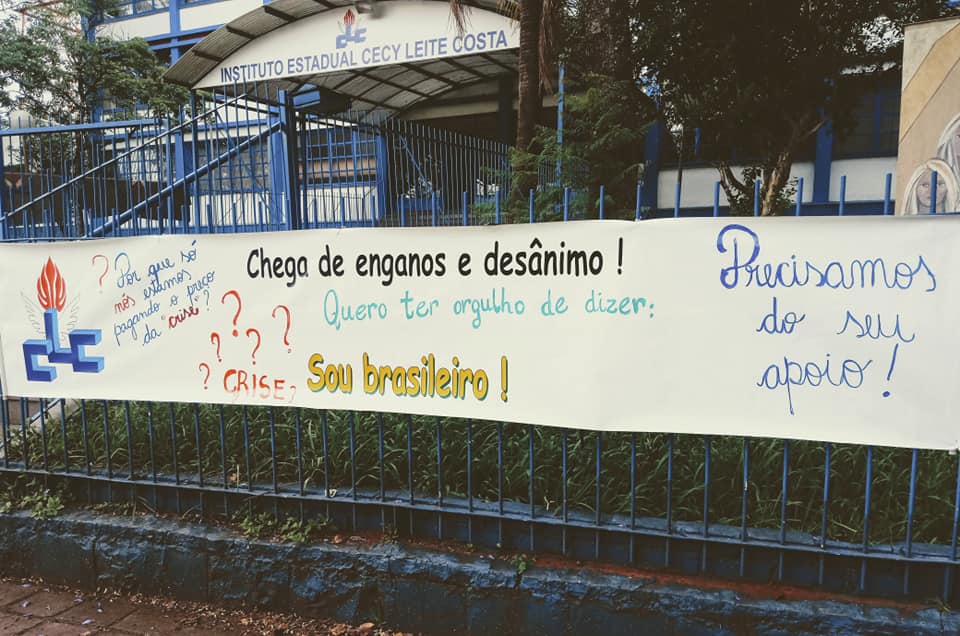 INSTITUTO ESTADUAL CECY LEITE COSTA
? Por que só
nós estamos
pagando o preço
da "crise"?
? ? ? ? ?
CRISE?
Chega de enganos e desânimo !
Quero ter orgulho de dizer:
Sou brasileiro !
Precisamos
do seu
apoio !